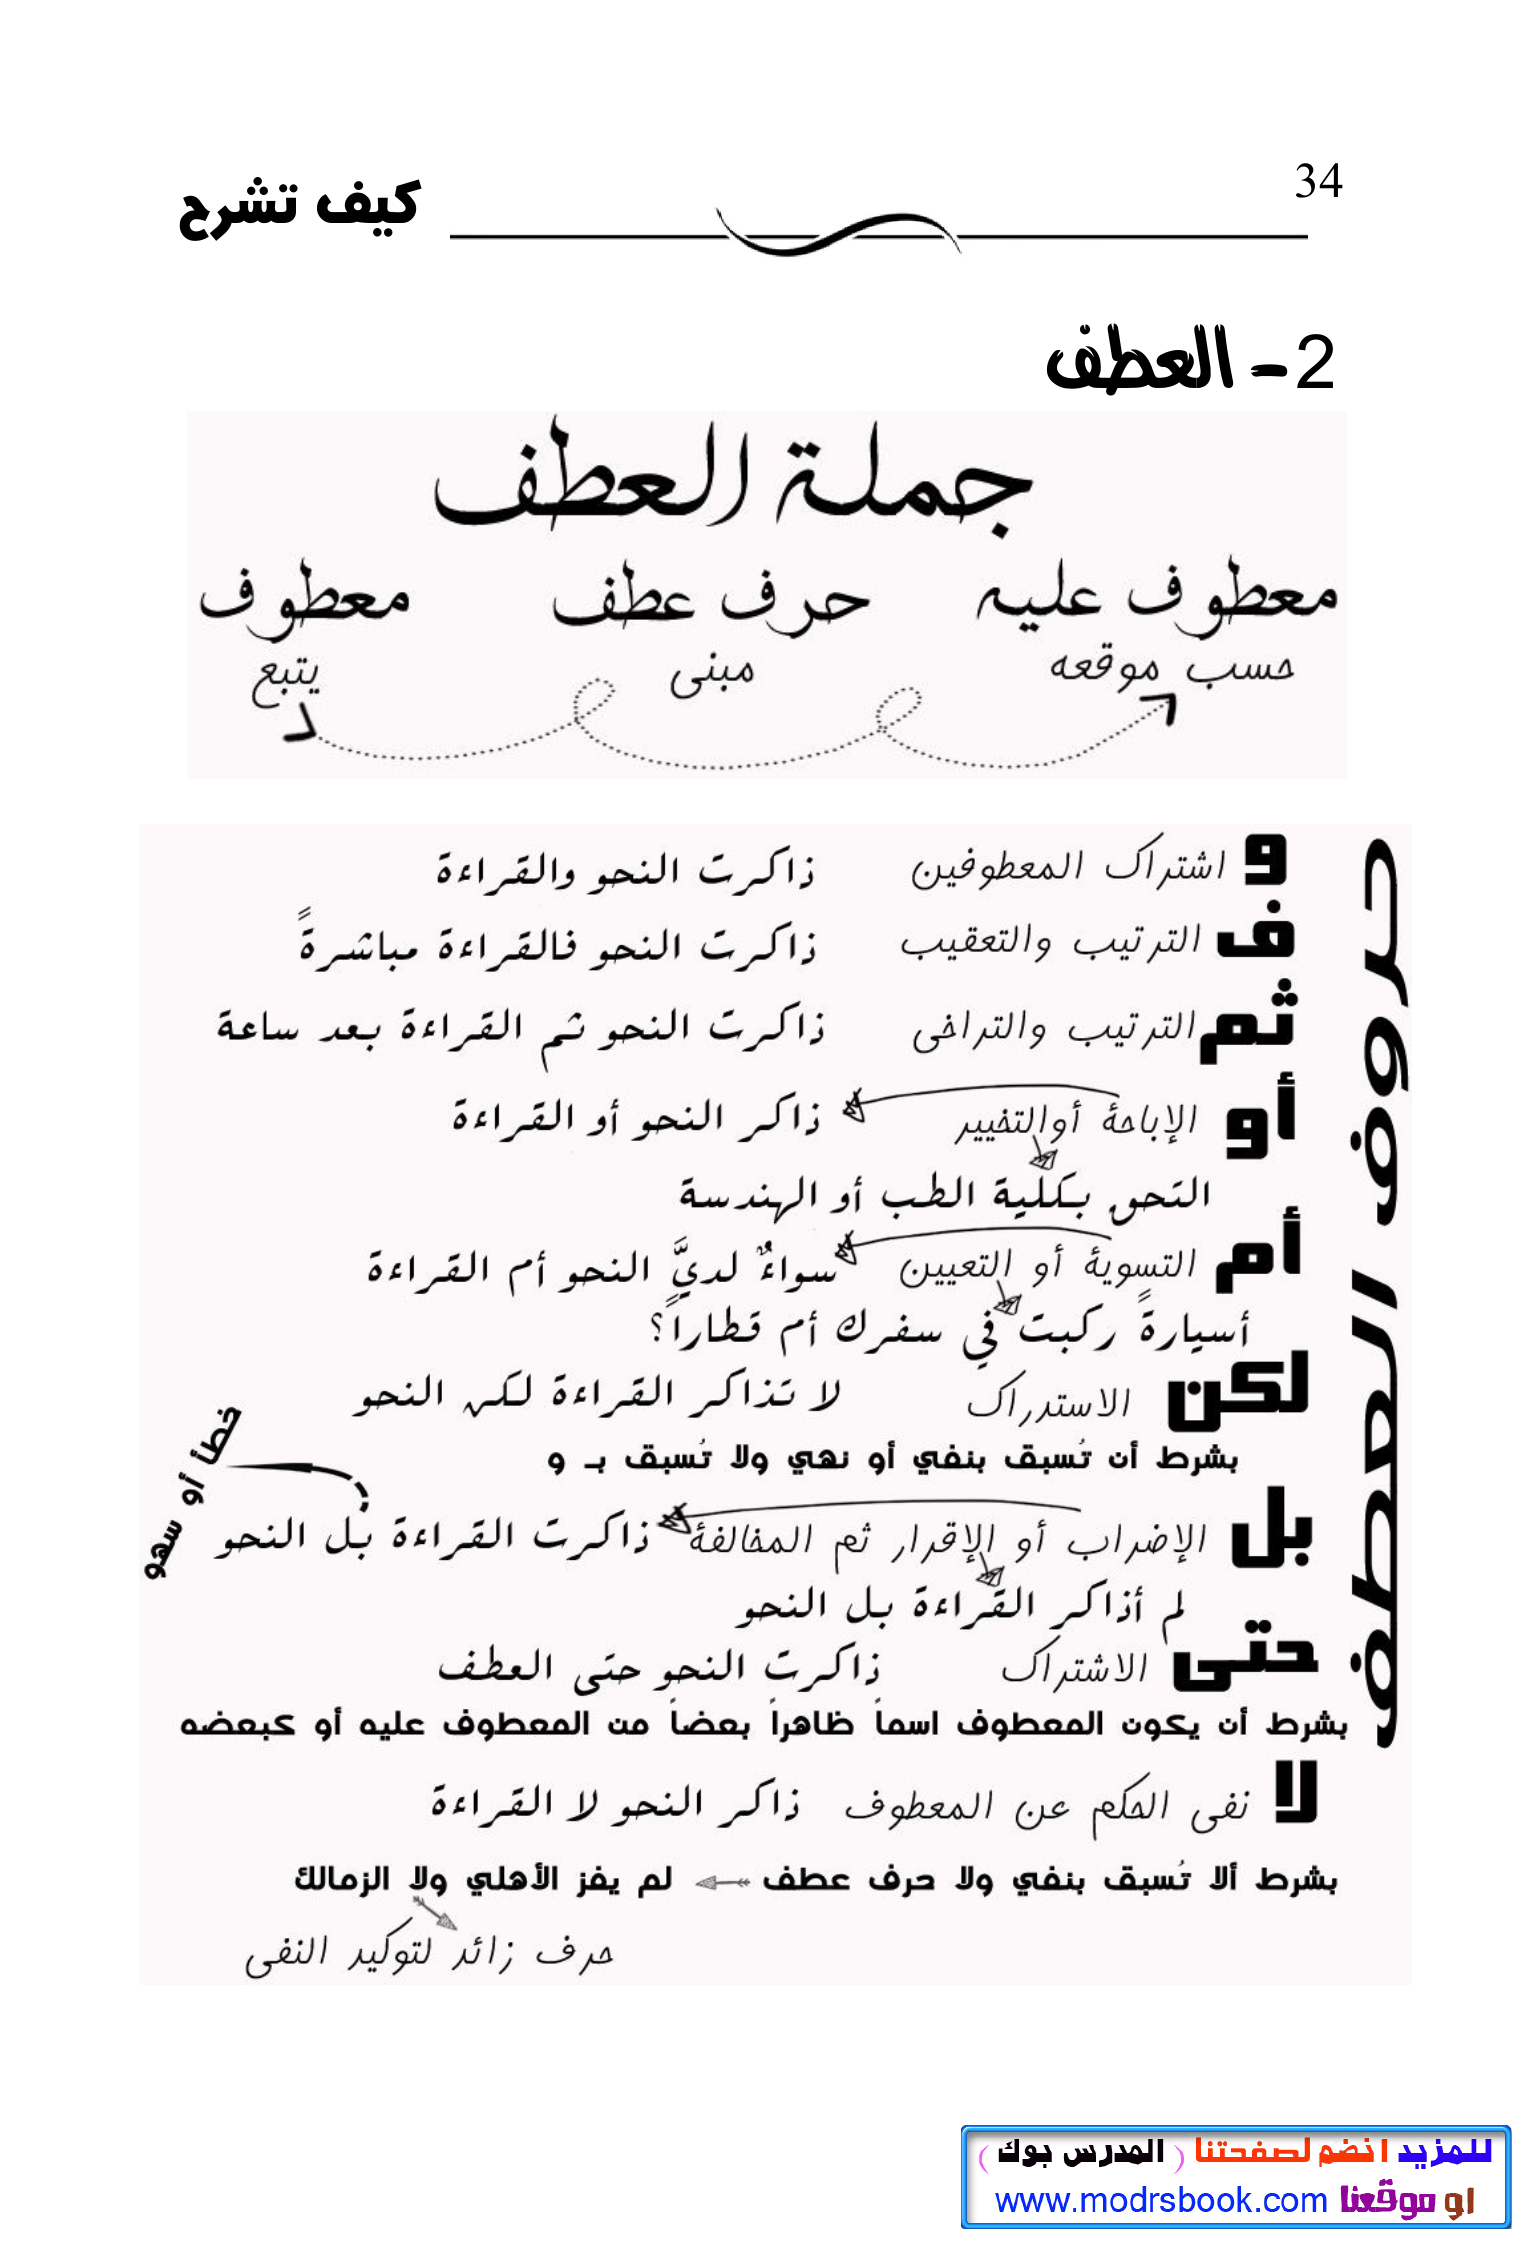 34
كيف تشرح
2- العطف
جملة العطف
معطوف عليه حرف عطف معطوف
حسب موقعه مبنى يتبع
حروف العطف
و اشتراك المعطوفين ذاكرت النحو والقراءة
ف الترتيب والتعقيب ذاكرت النحو فالقراءة مباشرةً
ثم الترتيب والتراخى ذاكرت النحو ثم القراءة بعد ساعة
أو الإباحة أوالتخيير ذاكر النحو أو القراءة
التحق بكلية الطب أو الهندسة
أم التسوية أو التعيين سواءٌ لديَّ النحو أم القراءة
أسيارةً ركبت في سفرك أم قطاراً؟
لكن الاستدراك لا تذاكر القراءة لكن النحو
بشرط أن تُسبق بنفي أو نهي ولا تُسبق بـ و
بل الإضراب أو الإقرار ثم المخالفة ذاكرت القراءة بل النحو
خطأ أو سهو
لم أذاكر القراءة بل النحو
حتى الاشتراك ذاكرت النحو حتى العطف
بشرط أن يكون المعطوف اسماً ظاهراً بعضاً من المعطوف عليه أو كبعضه
لا نفى الحكم عن المعطوف ذاكر النحو لا القراءة
بشرط ألا تُسبق بنفي ولا حرف عطف لم يفز الأهلي ولا الزمالك
حرف زائد لتوكيد النفى
للمزيد انضم لصفحتنا ( المدرس بوك )
او موقعنا www.modrsbook.com